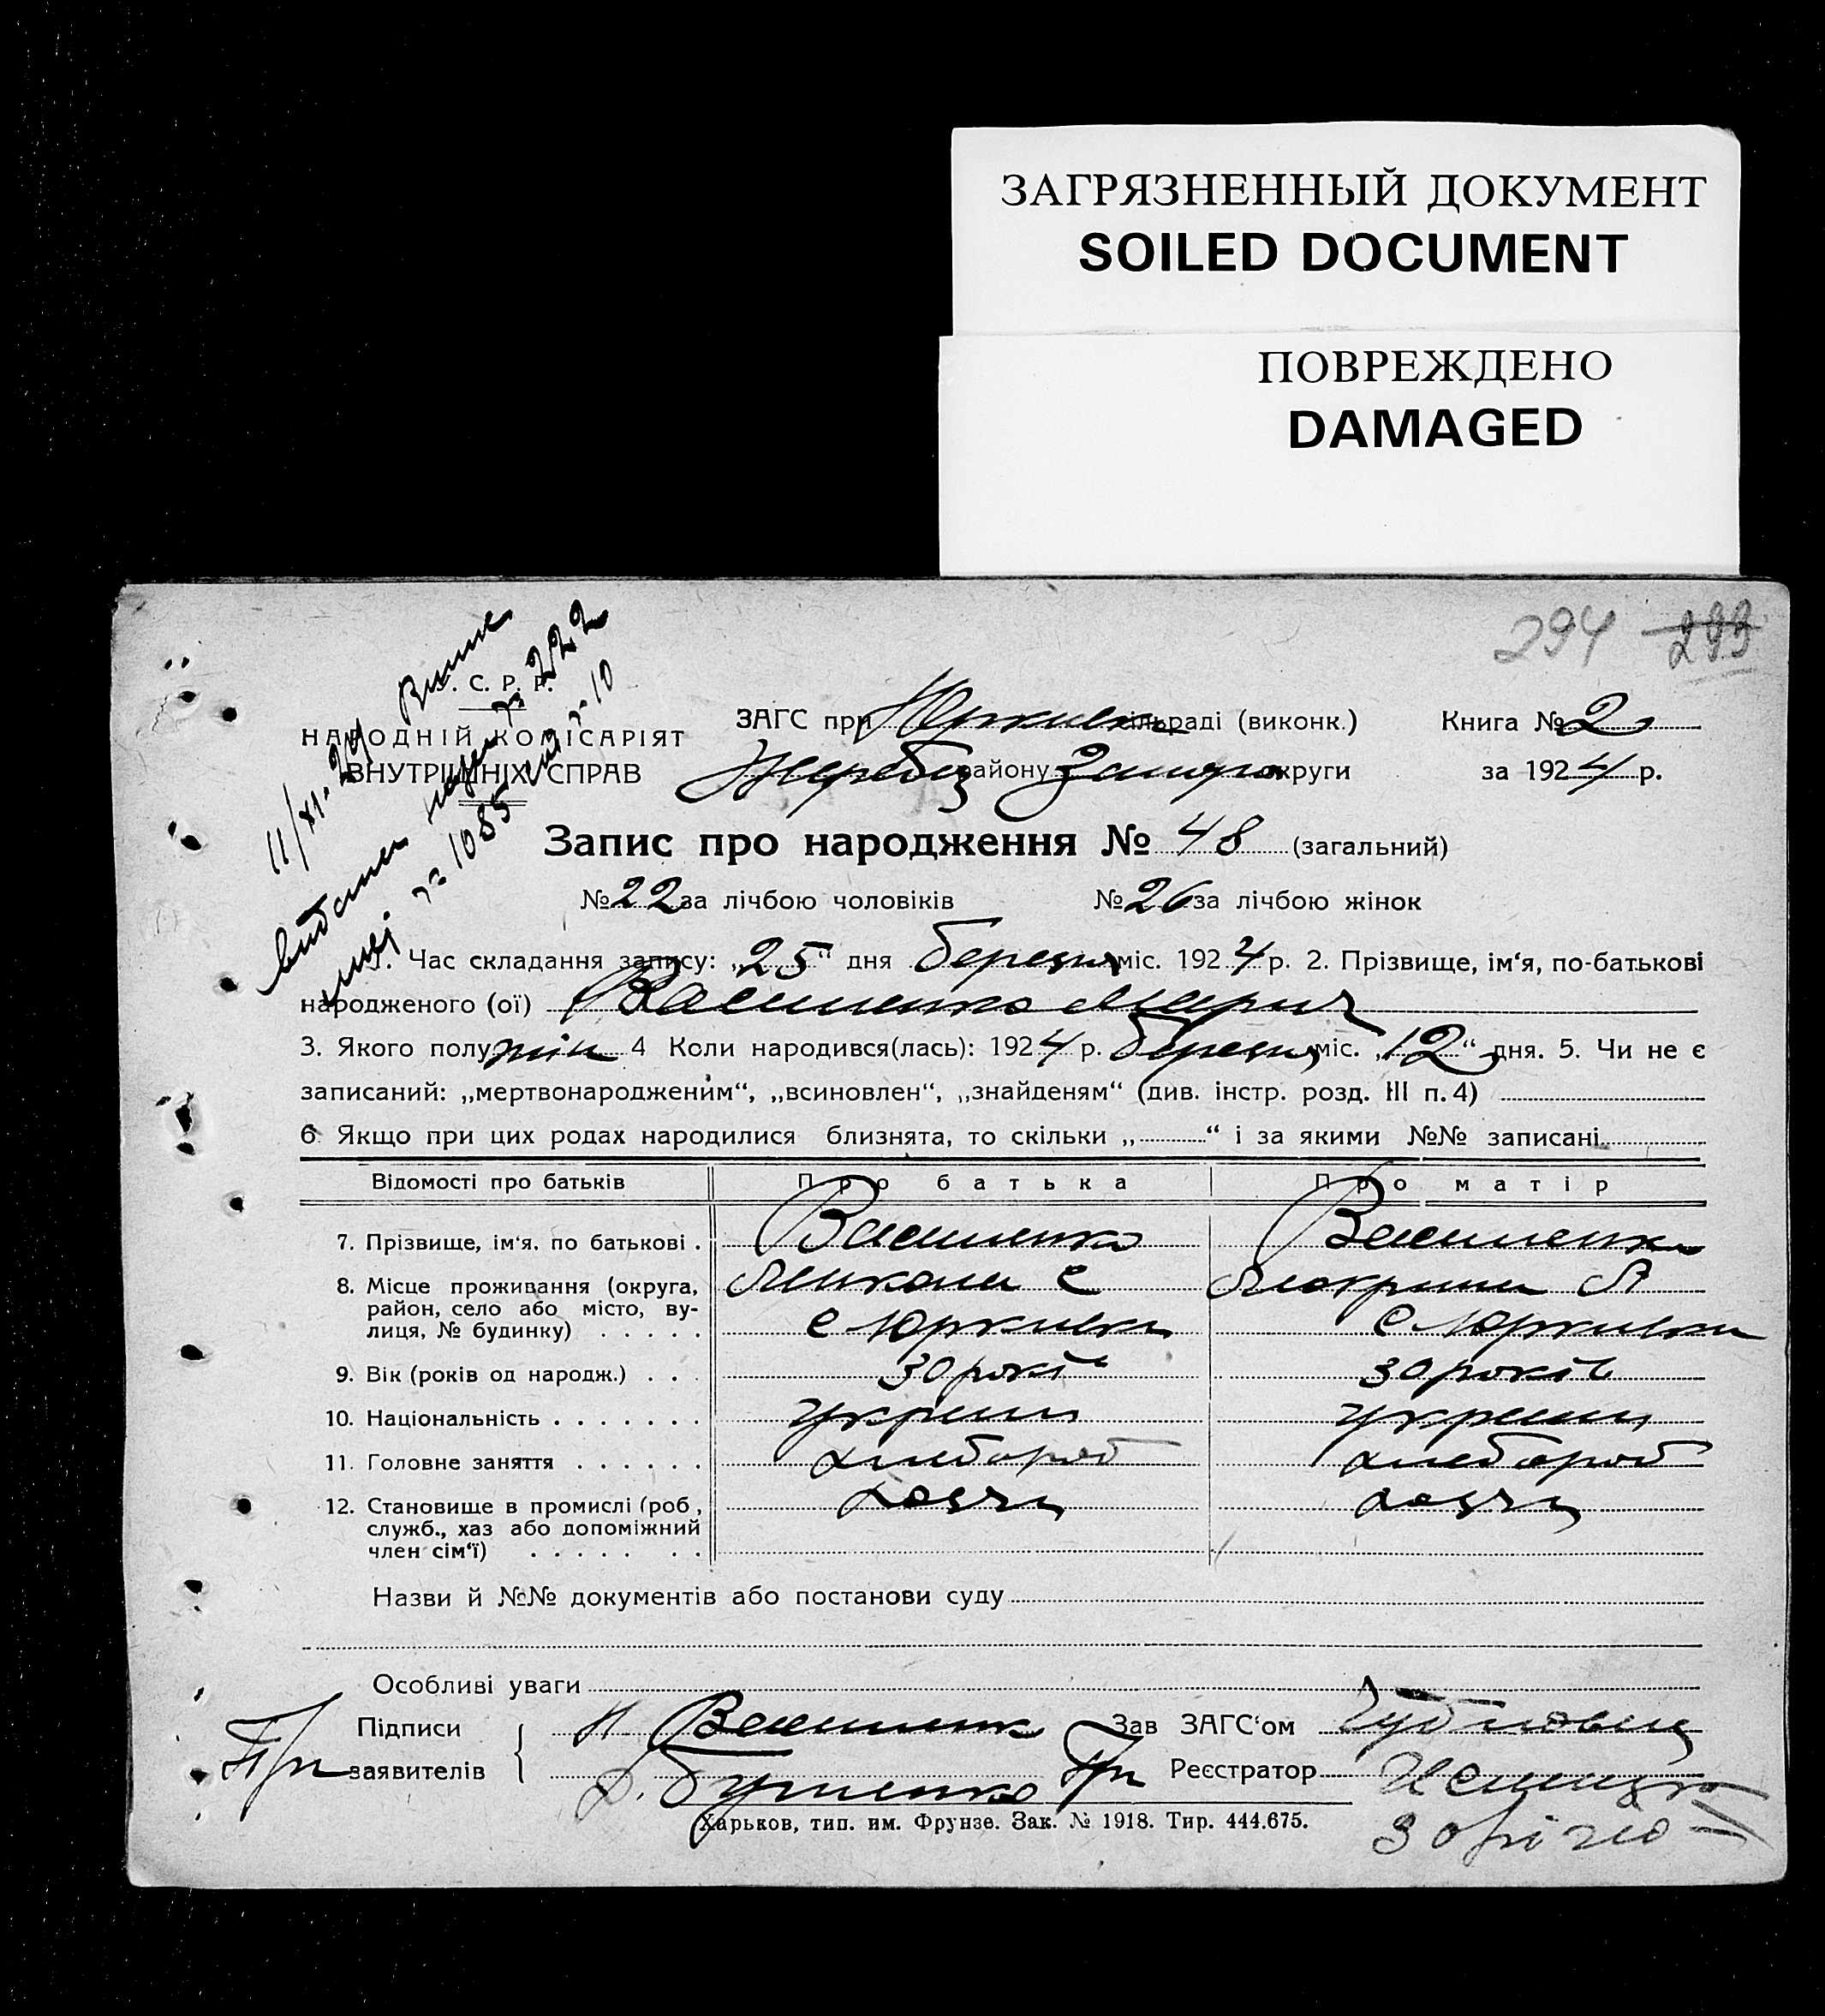 ЗАГРЯЗНЕННЫЙ ДОКУМЕНТ
SOILED DOCUMENT
ПОВРЕЖДЕНО
DAMAGED
294 293
У. С. Р. Р.
НАРОДНІЙ КОМІСАРІЯТ
ВНУТРІШНІХ СПРАВ
11/XI-24
№ 222
№ 1085
ЗАГС при Юрківск сільраді (виконк.) Книга № 2
Жеребец району Запоро округи за 1924 р.
Запис про народження № 48 (загальний)
№ 22 за лічбою чоловіків № 26 за лічбою жінок
1. Час складання запису: „25“ дня березня міс. 1924 р. 2. Прізвище, ім‘я, по-батькові
народженого (ої) Василенко Марія
3. Якого полу жін 4 Коли народився(лась): 1924 р. березня міс. „12“ дня. 5. Чи не є
записаний: „мертвонародженим“, „всиновлен“, „знайденям“ (див. інстр. розд. III п. 4)
6. Якщо при цих родах народилися близнята, то скільки „ “ і за якими №№ записані
Відомості про батьків Про батька Про матір
7. Прізвище, ім‘я. по батькові . Василенко Василенко
8. Місце проживання (округа, Микола С Мокрина А
район, село або місто, ву-
лиця, № будинку) . . . . . с Юрківка с Юрківка
9. Вік (років од народж.) . . . 30 років 30 років
10. Національність . . . . . . . україн україн
11. Головне заняття . . . . . . хлебороб хлебороб
12. Становище в промислі (роб., хазяін хазяін
служб., хаз або допоміжний
член сім‘ї) . . . . . . .
Назви й №№ документів або постанови суду
Особливі уваги
Підписи Н. Василенк Зав ЗАГС‘ом
заявителів Реєстратор
Харьков, тип. им. Фрунзе. Зак. № 1918. Тир. 444.675.